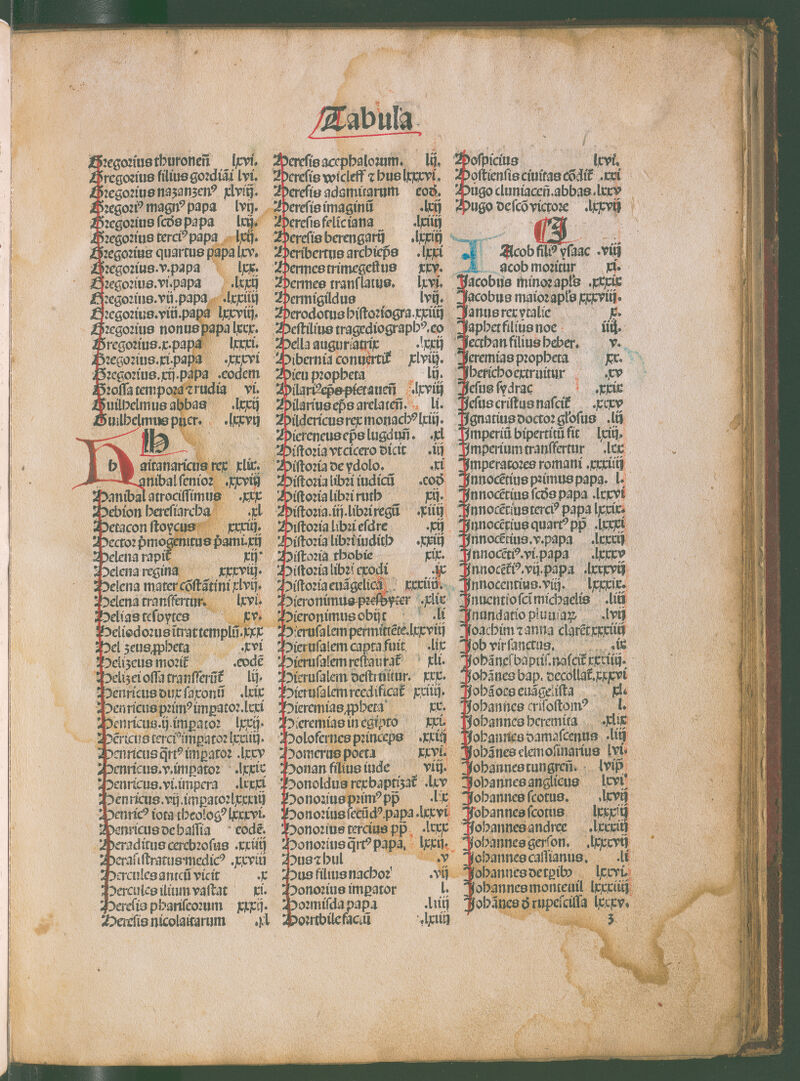 Tabula
Gregorius thuronen̄ lxvi.
Gregorius filius gordiāi lvi.
Gregorius nazanzenꝰ xlviij.
Gregoriꝰ magnꝰ papa lvij.
Gregorius scd̄s papa lxij.
Gregorius terciꝰ papa lxij.
Gregorius quartus papa lxv.
Gregorius.v.papa lxx.
Gregorius.vi.papa .lxxij
Gregorius.vij.papa .lxxiiij
Gregorius.viij.papa lxxviij.
Gregorius nonus papa lxxx.
Gregorius.x.papa lxxxi.
Gregorius.xi.papa .xxxvi
Gregorius.xij.papa .eodem
Grossa tempora ⁊ rudia vi.
Guilhelmus abbas .lxxij
Guilhelmus puer. .lxxvij
H
haitanaricus rex xlix.
Hanibal senior .xxviij
Hanibal atrocissimus .xxx
Hebion heresiarcha .xl
Hetacon stoycus xxxiij.
Hector p̄mogenitus p̄ami.xij
Helena rapit᷒ xij
Helena regina xxxviij.
Helena mater cōstātini xlvij.
Helena transfertur. lxvi.
Helias tesbytes xv.
Heliodorus ītrat templū.xxx
Hel zeus ꝓpheta .xvi
Helizeus morit᷒ .eodē
Helizei ossa transferūt᷒ lij.
Henricus dux saxonū .lxix
Henricus prīmꝰ imꝑator.lxxi
Henricus.ij.imꝑator lxxij.
Hēricus terciꝰ imꝑator lxxiiij.
Henricus q̄rtꝰ imꝑator .lxxv
Henricus.v.imꝑator .lxxix
Henricus.vi.impera .lxxxi
Henricus.vij.imꝑator lxxxiij
Henricꝰ iota theologꝰ lxxxvi.
Henricus de hassia eodē.
Heraditus cerebrosus .xxiiij
Herasistratus medicꝰ .xxviij
Hercules anteū vicit .x
Hercules ilium vastat xi.
Heresis phariseorum xxxij.
Heresis nicolaitarum .xl
Heresis acephalorum. lij.
Heresis wicleff ⁊ hus lxxxvi.
Heresis adamitarum eod.
Heresis imaginū .lxij
Heresis feliciana .lxiiij
Heresis berengarij .lxxiij
Heribertus archiep̄s .lxxi
Hermes trimegestus xxv.
Hermes translatus. lxvi.
Hermigildus lvij.
Herodotus historiogra.xxiiij
Hestilius tragediographꝰ.eo
Hella auguriatrix .lxxij
Hibernia conuertit᷒ xlviij.
Hieu propheta lij.
Hilariꝰ ep̄s pictauen̄ .lxviij
Hilarius ep̄s arelaten̄. li.
Hildericus rex monachꝰ lxiij.
Hiereneus ep̄s lugdun̄. .xl
Historia vt cicero dicit .iij
Historia de ydolo. .xi
Historia libri iudicū .eod
Historia libri ruth xij.
Historia.iij.libri regū .xiiij
Historia libri esdre .xij
Historia libri iudith .xxiij
Historia thobie xix.
Historia libri exodi .ix
Historia euāgelica xxxiiij.
Hieronimus presbyter .xlix
Hieronimus obijt .li
Hierusalem permittēte.lxxviij
Hierusalem capta fuit .lix
Hierusalem restaurat᷒ xli.
Hierusalem destruitur. xxx.
Hierusalem reedificat᷒ xxiiij.
Hieremias ꝓpheta xx.
Hieremias in egipto xxi.
Holofernes princeps .xxiij
Homerus poeta xxvi.
Honan filius iude viij.
Honoldus rex baptizat᷒ .lxv
Honorius prīmꝰ pp̄ .lix
Honorius secūdꝰ.papa.lxxvi
Honorius tercius pp̄ .lxxx
Honorius q̄rtꝰ papa, lxxij.
Hus ⁊ hul .v
Hus filius nachor .vij
Honorius imꝑator l.
Hormisda papa .liiij
Horribile factū .lxiiij
Hospicius lxvi.
Hostiensis ciuitas cōdit᷒ .xxi
Hugo cluniacen̄.abbas.lxxv
Hugo de scō victore .lxxvij
I
Iacob filiꝰ ysaac .viij
Iacob moritur xi.
Iacobus minor apl̄s .xxxix
Iacobus maior apl̄s xxxviij.
Ianus rex ytalie x.
Iaphet filius noe iiij.
Iecthan filius heber. v.
Ieremias propheta xx.
Ihericho extruitur .xv
Iesus sydrac .xxix
Iesus cristus nascit᷒ .xxxv
Ignatius doctor gl'osus .lij
Imperiū bipertitū fit lxiij.
Imperium transfertur .lxx
Imperatores romani .xxxiiij
Innocētius primus papa. l.
Innocētius scd̄s papa .lxxvi
Innocētius terciꝰ papa lxxix.
Innocētius quartꝰ pp̄ .lxxxi
Innocētius.v.papa .lxxxij
Innocētiꝰ.vi.papa .lxxxv
Innocētiꝰ.vij.papa .lxxxvij
Innocentius.viij. lxxxix.
Inuentio sci michaelis .liij
Inundatio pluuiaꝝ .lvij
Ioachim ⁊ anna clarēt.xxxiiij
Iob vir sanctus. .ix
Iohānes baptis̄.nascit᷒ xxxiiij.
Iohānes bap. decollat᷒.xxxvi
Iohānes euāgelista xl.
Iohannes crisostomꝰ l.
Iohannes heremita .xlix
Iohannes damascenus .liij
Iohānes elemosinarius lvi.
Iohannes tungren̄. lviij
Iohannes anglicus lxvi
Iohannes scotus. .lxvij
Iohannes scotus lxxxiij
Iohannes andree .lxxxiij
Iohannes gerson. .lxxxvij
Iohannes cassianus. .li
Iohannes de tꝑibꝰ lxxvi.
Iohannes monteuil lxxxiiij
Iohānes d̄ rupescissa lxxxv.
3